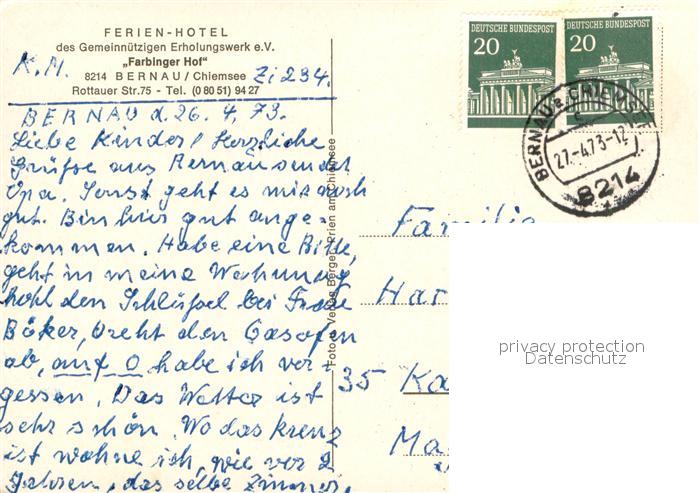 FERIEN-HOTEL
des Gemeinnützigen Erholungswerk e.V.
„Farbinger Hof"
8214 BERNAU/Chiemsee
Rottauer Str.75 - Tel. (0 80 51) 94 27
K.M.
Zi 234.
BERNAU d. 26.4.73.
Liebe Kinder! Herzliche
Grüße aus Bernau sendet
Opa. Sonst geht es mir noch
gut. Bin hier gut ange-
kommen. Habe eine Bitte,
geht in meine Wohnung
hohl den Schlüssel bei Frau
Böker, Dreht den Gasofen
ab, auf 0 habe ich ver-
gessen. Das Wetter ist
sehr schön. Wo das Kreuz
ist wohne ich, wie vor 2
Jahren, das selbe Zimmer.
Foto u. Verlag Berger, Prien am Chiemsee
DEUTSCHE BUNDESPOST
20
DEUTSCHE BUNDESPOST
20
BERNAU a. CHIEMSEE
27.-4.73-12
8214
Familie
Har
35 Ka
Ma
privacy protection
Datenschutz